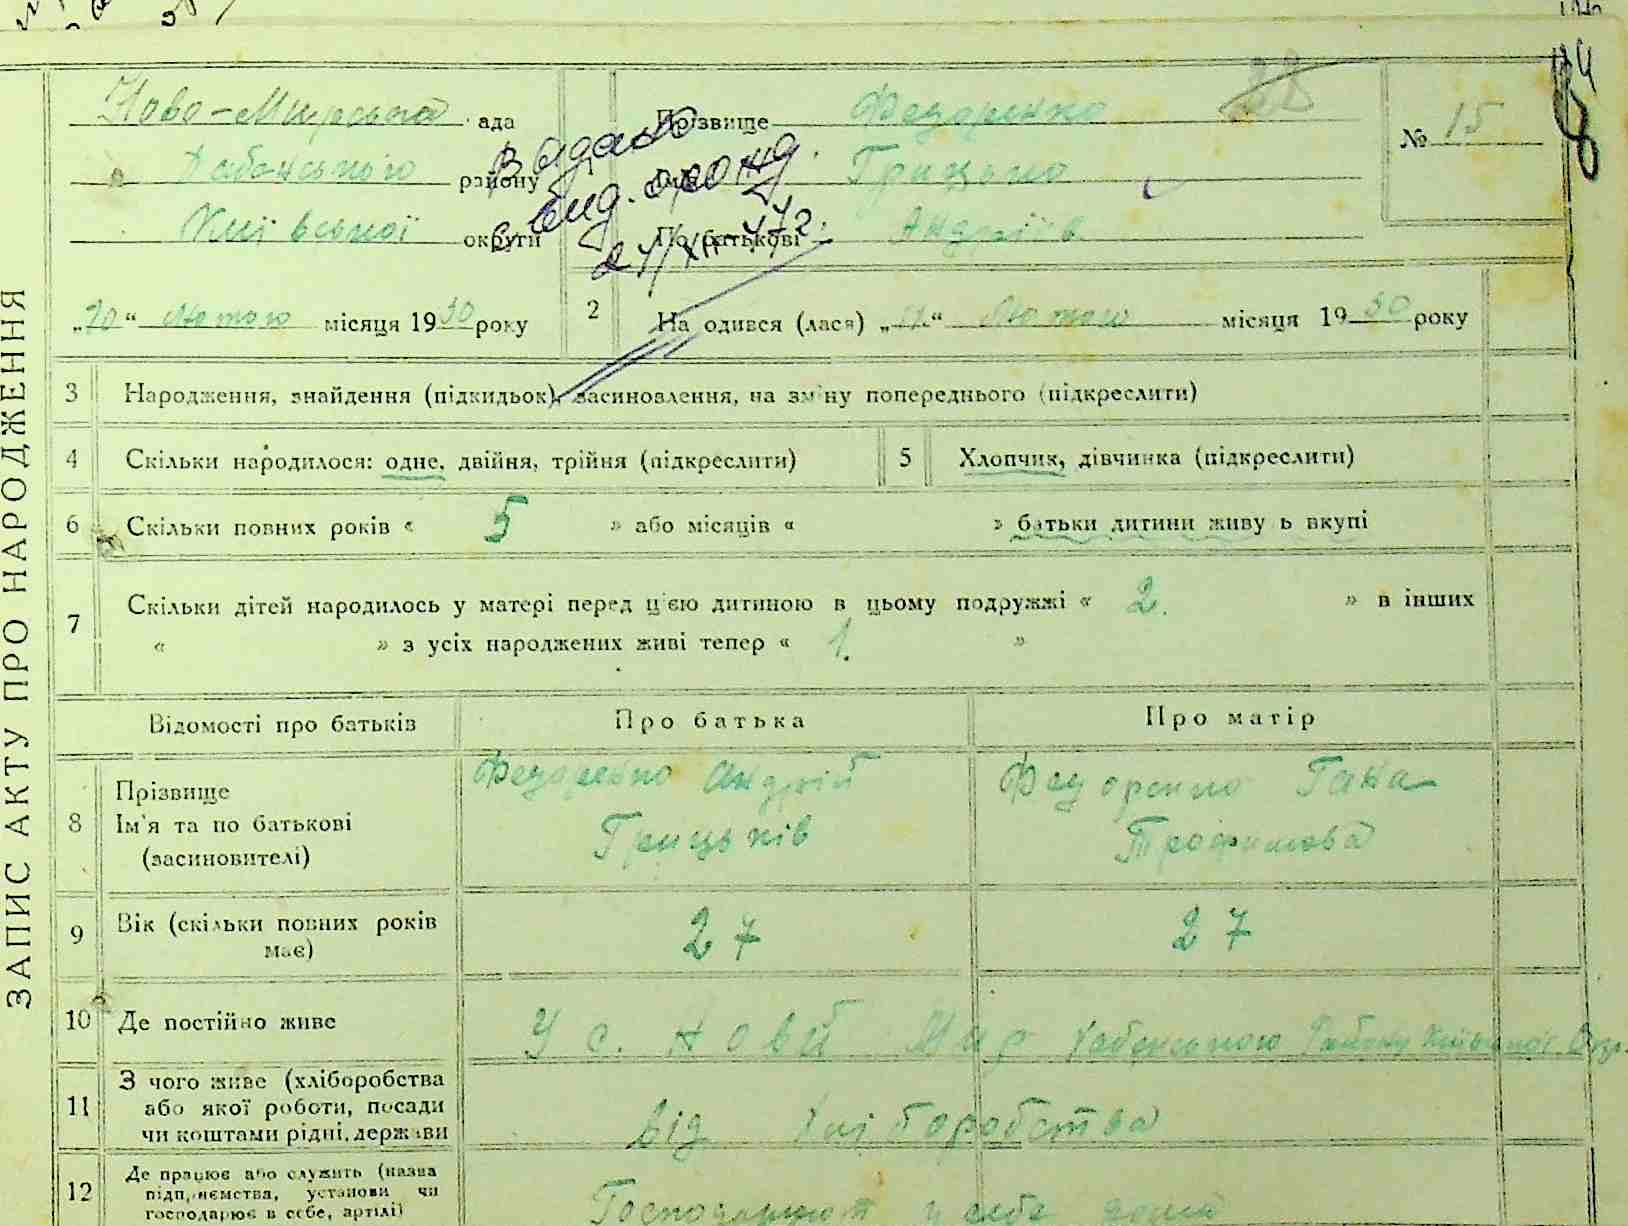 ЗАПИС АКТУ ПРО НАРОДЖЕННЯ
Ново-Мирська рада
Хабенського району
Київської округи
Прізвище Федоренко
Ім'я Грицько
По батькові Андріїв
№ 15
28
84
Видано
свид. о рожд.
„20“ Лютого місяця 1930 року
2 Народився (лася) Лютого місяця 1930 року
3 Народження, знайдення (підкидьок), засиновлення, на зміну попереднього (підкреслити)
4 Скільки народилося: одне, двійня, трійня (підкреслити)
5 Хлопчик, дівчинка (підкреслити)
6 Скільки повних років « 5 » або місяців « » батьки дитини живуть вкупі
7 Скільки дітей народилось у матері перед цією дитиною в цьому подружжі « 2. » в інших
« » з усіх народжених живі тепер « 1. »
Відомості про батьків Про батька Про матір
8 Прізвище
Ім'я та по батькові
(засиновителі)
Федоренко Андрій
Грицьків
Федоренко Гана
Трофимова
9 Вік (скільки повних років
має)
27 27
10 Де постійно живе У с. Новий Мир Хабенського Району Київської Окр.
11 З чого живе (хліборобства
або якої роботи, посади
чи коштами рідні, держави
від хліборобства
12 Де працює або служить (назва
підприємства, установи чи
господарює в себе, артілі)
Господарюют у себе дома